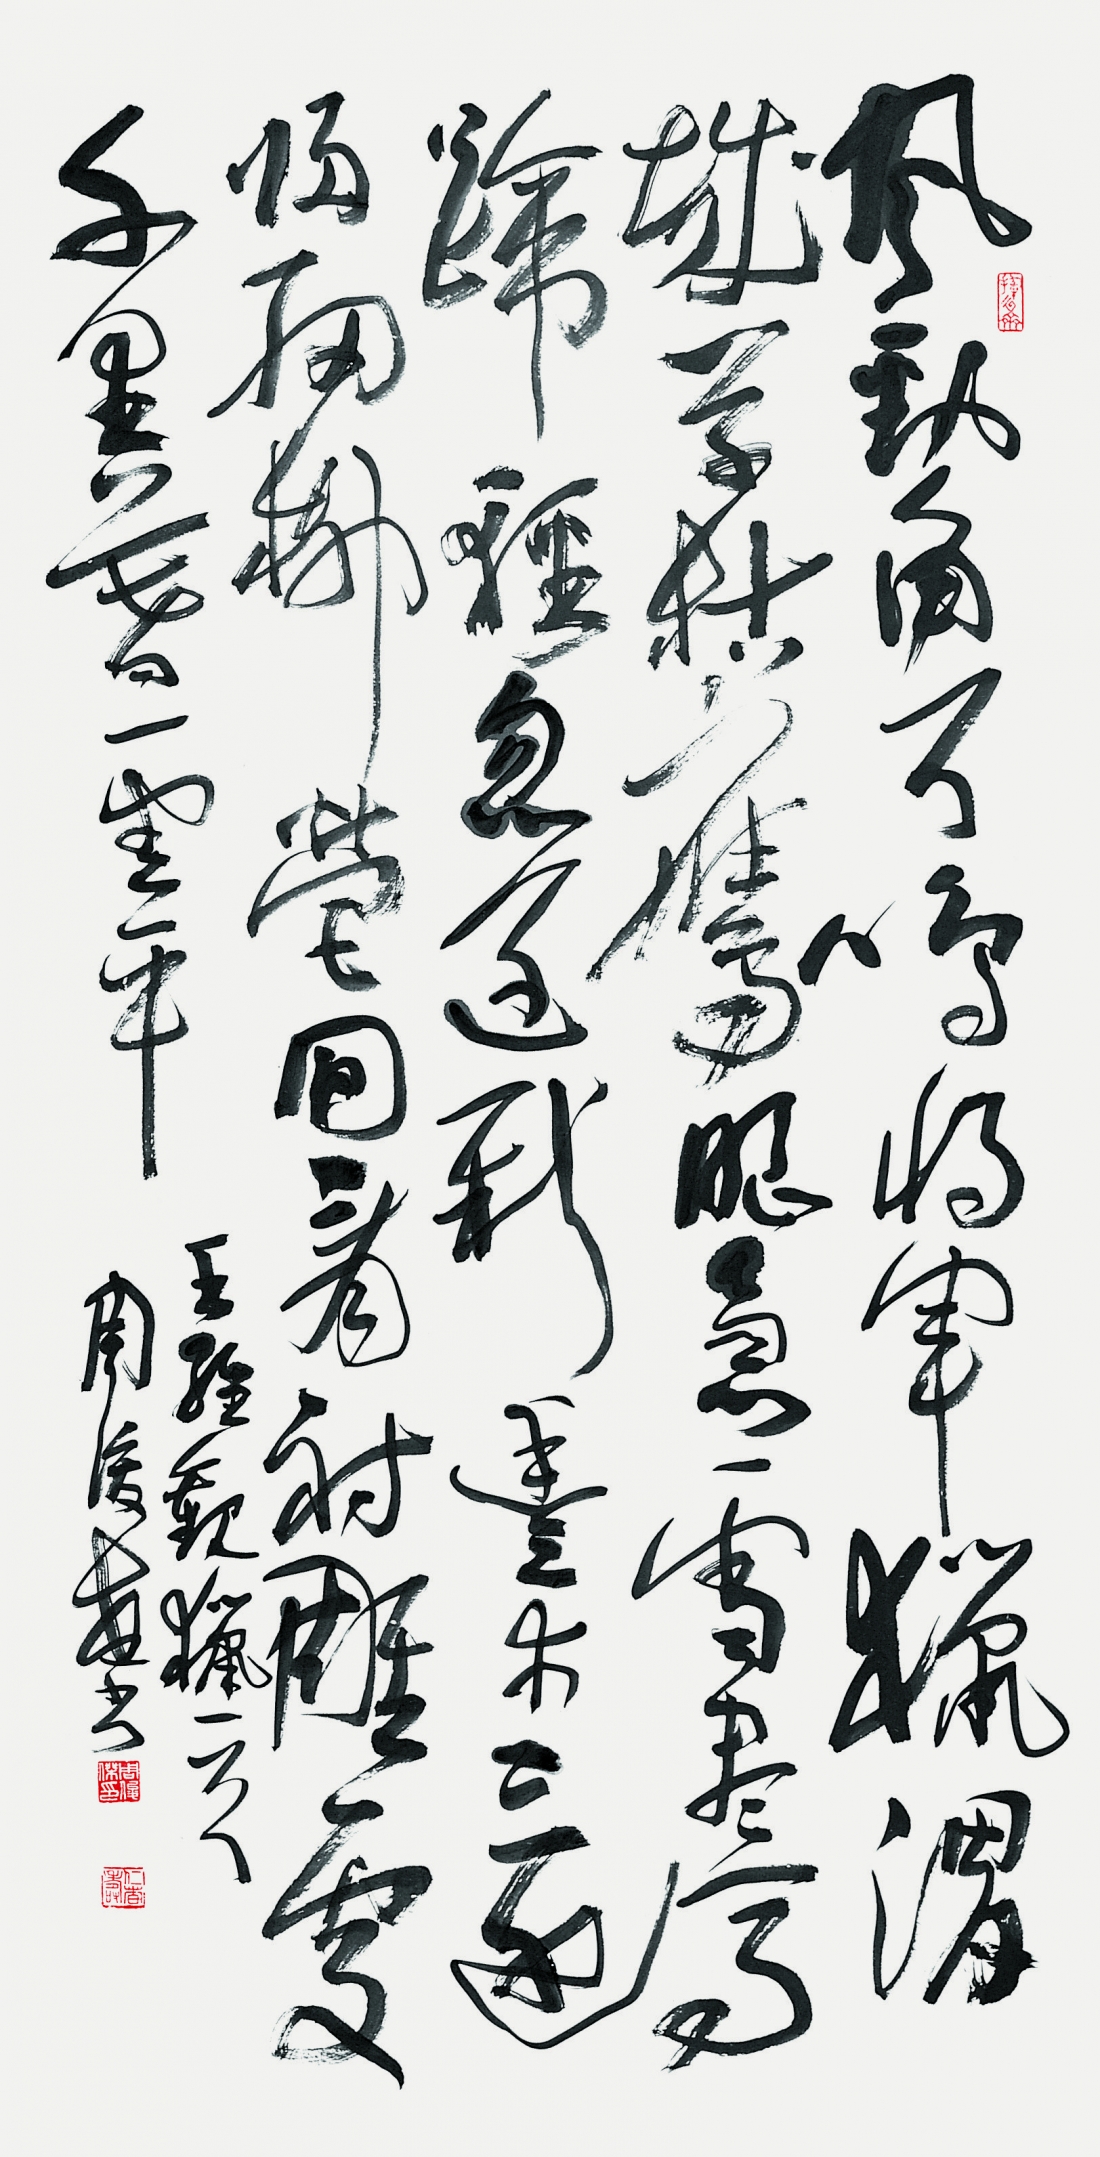 風勁角弓鳴將軍獵渭
城草枯鷹眼急雪盡馬
蹄輕忽過新豐市還
歸細柳營回看射雕處
千里暮雲平
王維觀獵一首
周俊杰書
周俊傑印